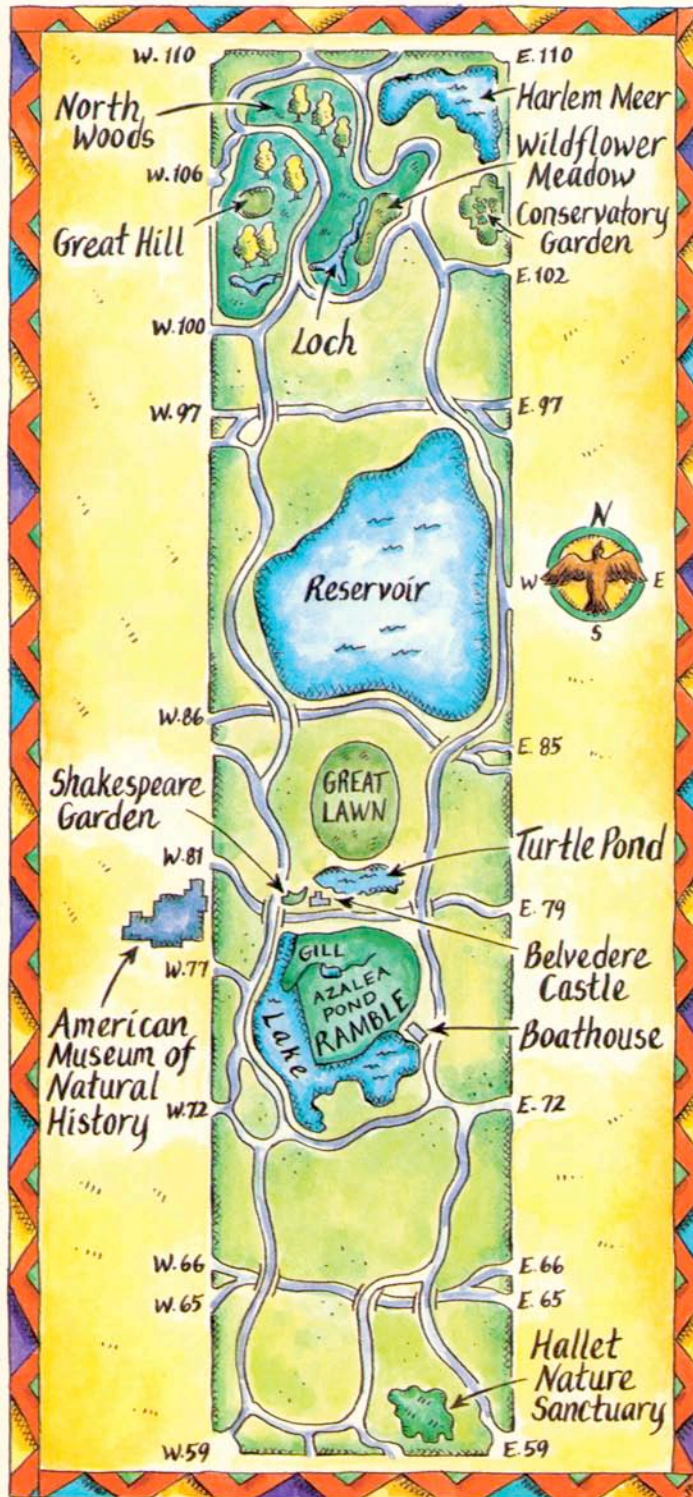 W. 110
E. 110
North
Woods
Harlem Meer
Wildflower
Meadow
W. 106
Conservatory
Garden
Great Hill
E. 102
W. 100
Loch
W. 97
E. 97
N
W
E
S
Reservoir
W. 86
E. 85
Shakespeare
Garden
GREAT
LAWN
W. 81
Turtle Pond
E. 79
Belvedere
Castle
W. 77
GILL
AZALEA
POND
RAMBLE
Lake
Boathouse
American
Museum of
Natural
History
W. 72
E. 72
W. 66
E. 66
W. 65
E. 65
Hallet
Nature
Sanctuary
W. 59
E. 59